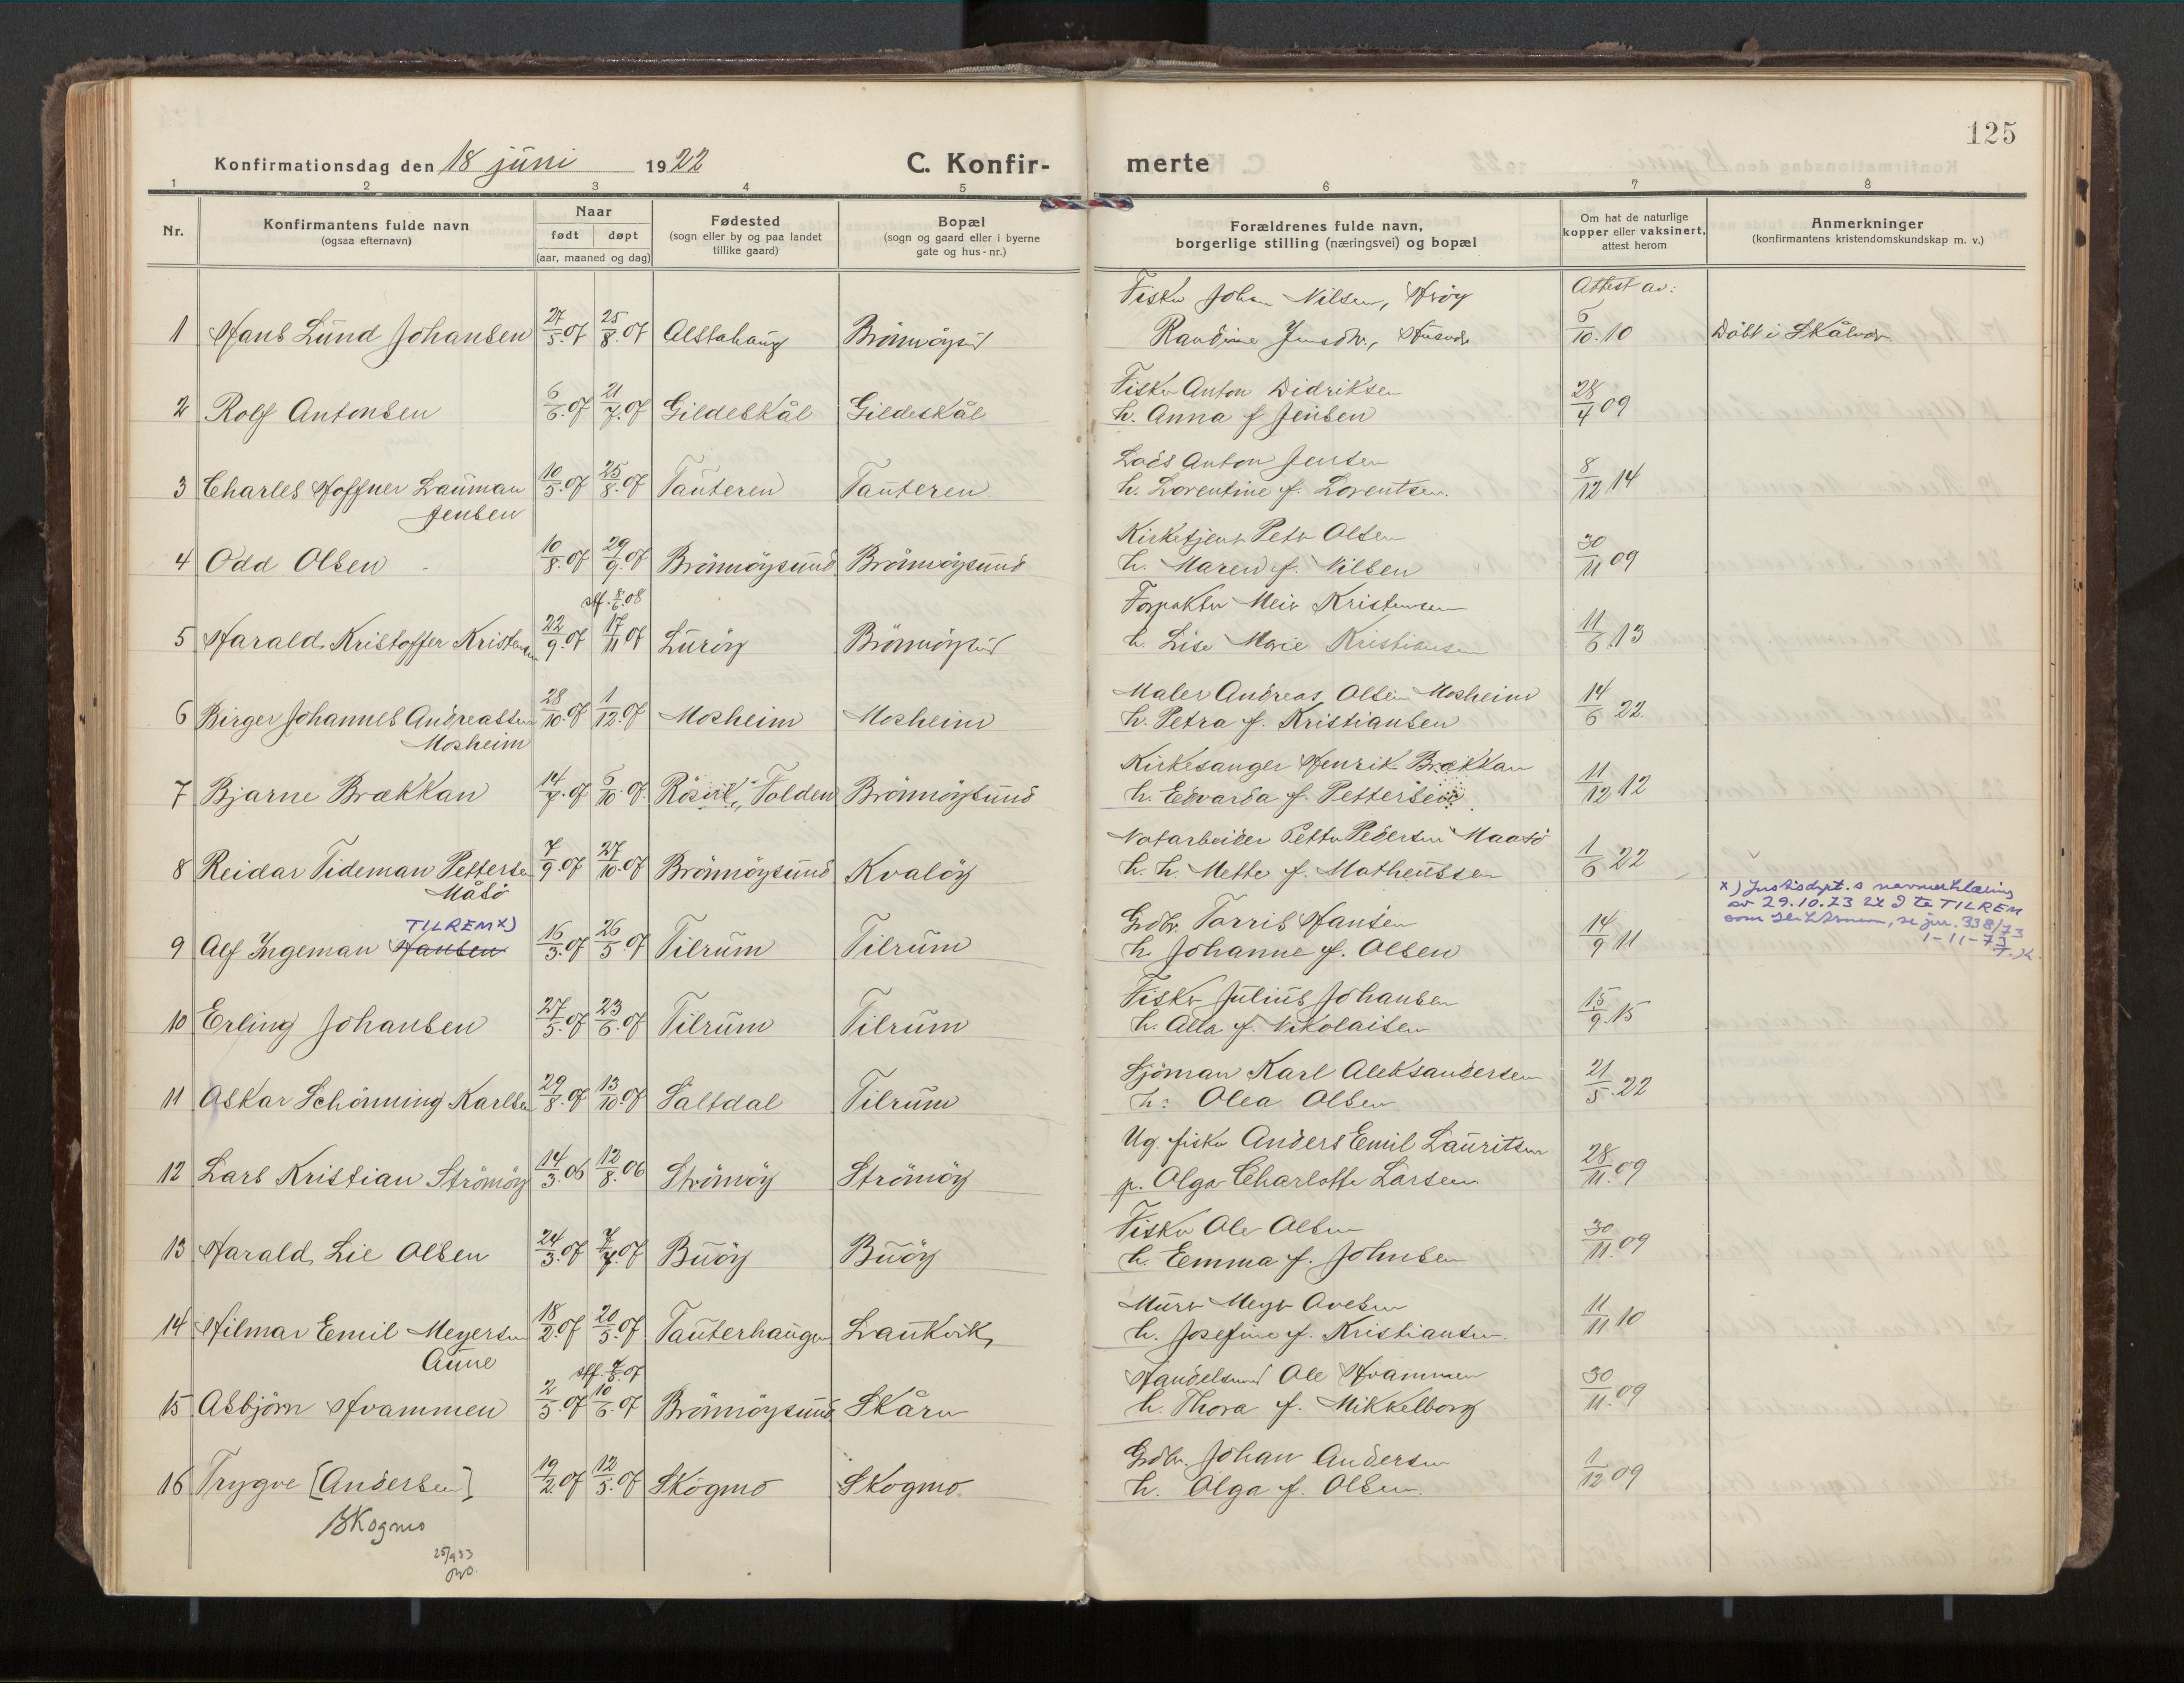 125
Konfirmationsdag den 18 juni 1922
C. Konfir-
merte
1 2 3 4 5 6 7 8
Nr.
Konfirmantens fulde navn
(ogsaa efternavn)
Naar
født døpt
(aar, maaned og dag)
Fødested
(sogn eller by og paa landet
tillike gaard)
Bopæl
(sogn og gaard eller i byerne
gate og hus-nr.)
Forældrenes fulde navn,
borgerlige stilling (næringsvei) og bopæl
Om hat de naturlige
kopper eller vaksinert,
attest herom
Anmerkninger
(konfirmantens kristendomskundskap m. v.)
Fisker Johan Nilsen, Attest av:
1 Hans Lund Johansen 27/5.07 25/8.07 Alstahaug Brönnöysund 6/10.10 Döbt i
Fisker Anton Didriksen
2 Rolf Antonsen 6/6.07 21/7.07 Gildeskål Gildeskål h. Anna f. Jensen 28/4 09
Lods Anton Jensen
3 Charles Hoffner Lauman 10/5.07 25/8.07 Tauteren Tauteren h. Lorentine f. Lorentsen. 8/12 14
Jensen
Kirketjener Peter Olsen
4 Odd Olsen 10/8.07 29/9.07 Brönnöysund Brönnöysund h. Maren f. Nilsen 30/11 09
stf. 8/6.08 Forpakter Meier Kristensen
5 Harald Kristoffer Kristensen 22/9.07 17/11 07 Luröy Brönnöysund h. Lise Marie Kristiansen 11/6.13
Maler Andreas Olsen Mosheim
6 Birger Johannes Andreassen 28/10.07 1/12.07 Mosheim Mosheim h. Petra f. Kristiansen 14/6 22
Mosheim
Kirkesanger Henrik Brækkan
7 Bjarne Brækkan 14/7.07 6/10.07 Rösvik, Folden Brönnöysund h. Edvarda f. Pettersen 11/12 12
Notarbeider Petter Pedersen Maasö
8 Reidar Tideman Pettersen 7/9.07 27/10.07 Brönnöysund Kvalöy h. h. Mette f. Matheussen 1/6 22
Måsö
x) Justisdept.s navneerklæring
av 29.10.73 TILREM
som slektsnavn, se jnr. 338/73
1-11-73
TILREM x) Gdbr. Torris Hansen
9 Alf Ingeman Hansen 16/3.07 26/5.07 Tilrum Tilrum h. Johanne f. Olsen 14/9 11
Fisker Julius Johansen
10 Erling Johansen 27/5.07 23/6.07 Tilrum Tilrum h. Alla f. Nikolaisen 15/9.15
Sjöman Karl Aleksandersen
11 Oskar Schönning Karlsen 29/8.07 13/10.07 Saltdal Tilrum h. Olea Olsen 21/5.22
Ug. fisker Anders Emil Lauritsen
12 Lars Kristian Strömöy 14/3.06 12/8.06 Strömöy Strömöy p. Olga Charlotte Larsen 28/11.09
Fisker Ole Olsen
13 Harald Lie Olsen 24/3.07 7/7.07 Buöy Buöy h. Emma f. Johnsen 30/11.09
Murer Meyer Ovesen
14 Hilmar Emil Meyersen 18/2.07 20/5.07 Tauterhaugen Laukvik h. Josefine f. Kristiansen. 11/11 10
Aune
Handelsmand Ole Hvammen
15 Asbjörn Hvammen 2/5.07 10/6.07 Brönnöysund Skåren h. Thora f. Mikkelborg 30/11.09
Gdbr. Johan Andersen
16 Trygve [Andersen] 19/2.07 12/5.07 Skogmo Skogmo h. Olga f. Olsen. 1/12 09
Skogmo